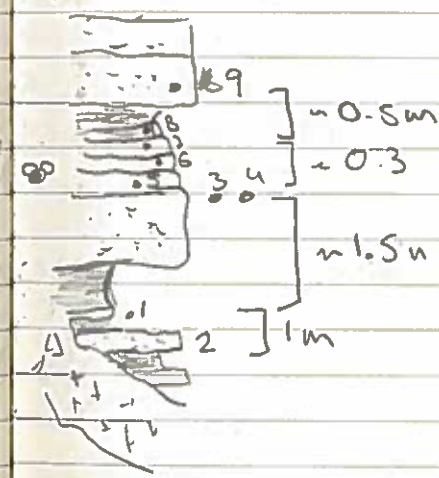 9
~ 0.5m
8
7
6
~ 0.3
5
3 4
~ 1.5m
.1
2
1m